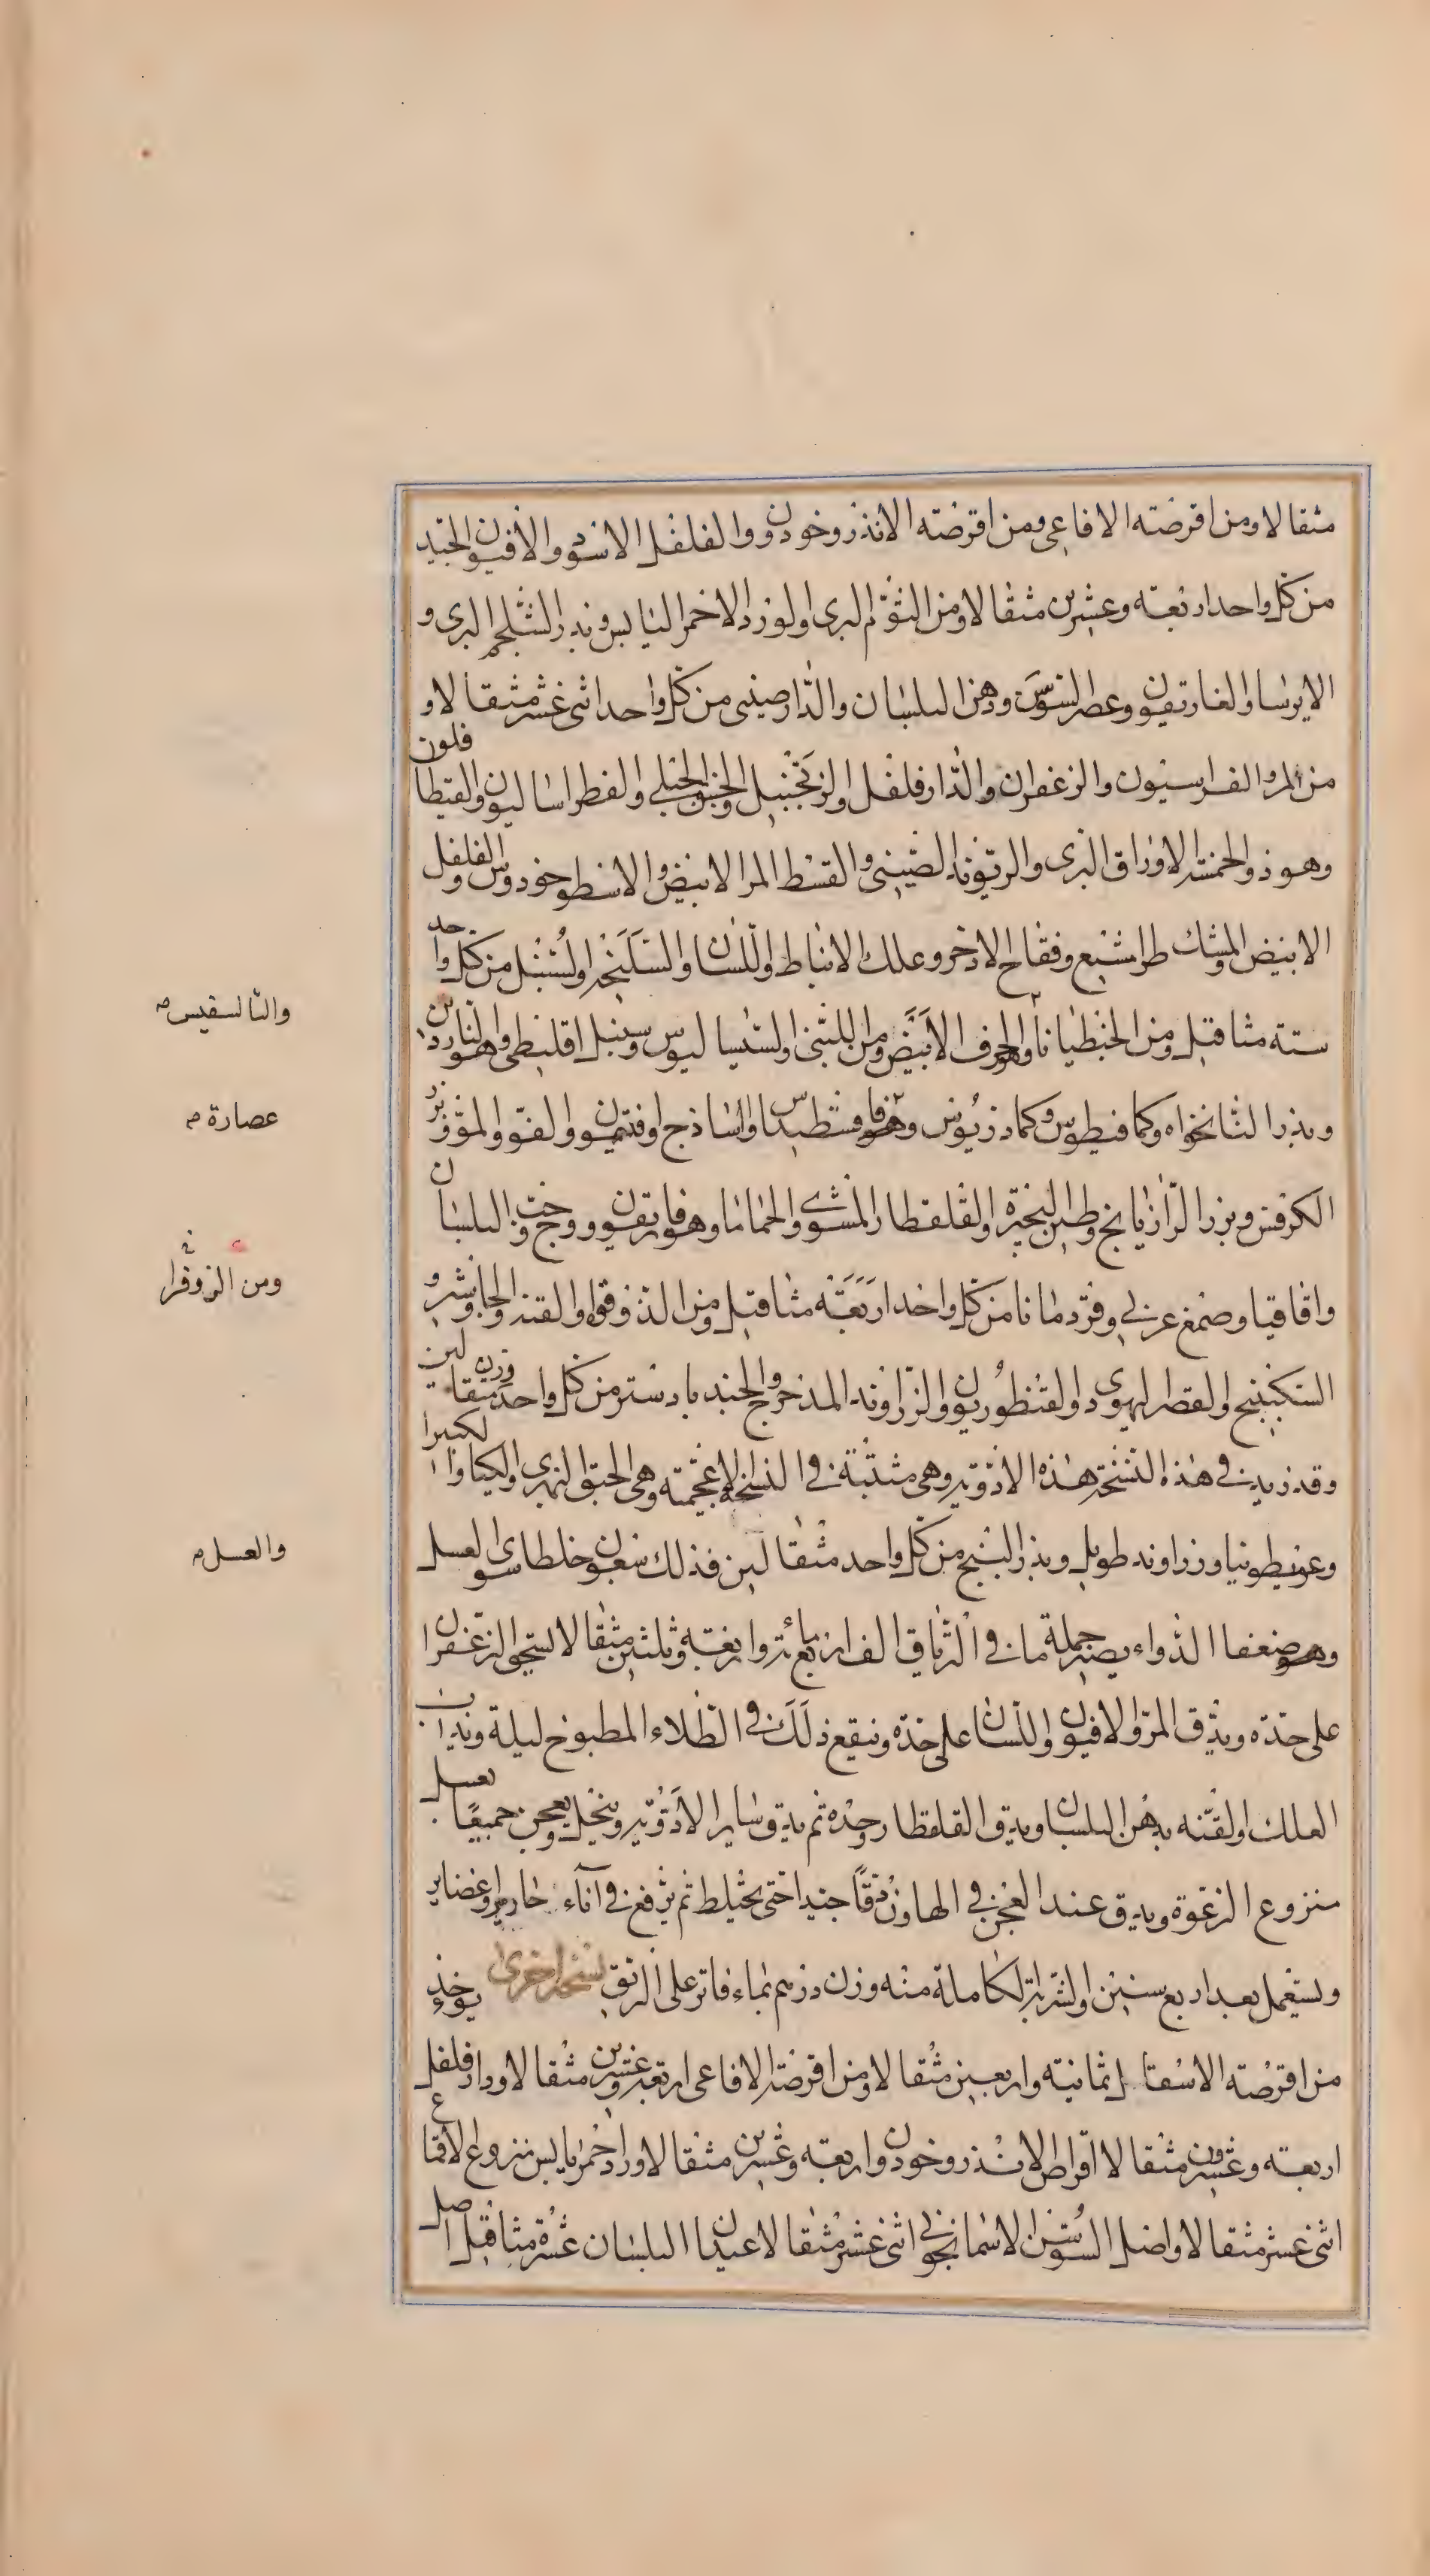 مثقالا ومن اقرصته الافاعى ومن اقرصته الانذروخودن والفلفل الاسود والافيون الجيد
من كل واحد اربعته وعشرين مثقالا ومن الثوم البرى والورد الاحمر اليابس وبذر الشلجم البرى و
الايرسا والغاريقون وعصار السوس ودهن البلسان والدارصينى من كل واحد اثنى عشر مثقالا و
من المر والفراسيون والزعفران والدارفلفل والزنجبيل والحبق الجبلى والفطراساليون والقيطافلون
وهو ذو الخمسة الاوراق البرى والريوند الصينى والقسط المر الابيض والاسطوخودوس والفلفل
الابيض والمشك طرامشيع وفقاح الاذخر وعلك الانباط واللسان والسليخه والسنبل من كل واحد
ستة مثاقيل ومن الجنطيانا والحرف الابيض ومن اللبنى والسيساليوس وسنبل اقليطى وهو الناردين
والثالسفيس
وبذر النانخواه وكمافيطوس وكمادريوس وهوفافسطيداس والساذج وافتيمون والفو والمو وبزر
عصارة
الكرفس وبزر الرازيانج وطين البحيرة والقلقطار المشوى والحماما وهوفاريقون ووج وحب البلسان
واقاقيا وصمغ عربى وقردمانا من كل واحد اربعته مثاقيل ومن الدوقوا والقنه والجاوشير و
ومن الزوفرا
السكبينج والقصر اليهودى والقنطوريون والزراوند المدحرج والجندبادستر من كل واحد وزن مثقالين
وقد زيد فى هذه النسخة هذه الادويه وهى مثبتة فى النسخ الاعجميته وهى الحبق النهرى والكيا والكثيرا
وعرنيطونيا وزراوند طويل وبذر البنج من كل واحد مثقالين فذلك سبعون خلطا سوى العسل
والعسل
وهو ضعفا الدواء يصير جملة ما فى الترياق الف اربع مائة واربعته وثلثين مثقالا يسحق الزعفران
على حدّه ويدق المرّ والافيون واللسان على حدّه وينقع ذلك فى الطلاء المطبوخ ليلة ويذاب
العلك والقنه بدهن البلسان ويدق القلقطار وحده ثم يدق ساير الادويه وينخل ويعجن جميعًا بعسل
منزوع الرغوة ويدق عند العجن فى الهاون دقّا جيدا حتى يختلط ثم يرفع فى آناء
ويستعمل بعد اربع سنين والشربة الكاملة منه وزن درهم بماء فاتر على الريق نسخه اخرى يوخذ
من اقرصته الاسقال ثمانيته واربعين مثقالا ومن اقرصته الافاعى اربعه وعشرين مثقالا ودارفلفل
اربعته وعشرون مثقالا اقراص الانذروخودن واربعته وعشرين مثقالا ورد احمر يابس منزوع الاقماع
اثنى عشر مثقالا واصل السوسن الاسمانجونى اثنى عشر مثقالا عيدان البلسان عشرة مثاقيل اصل